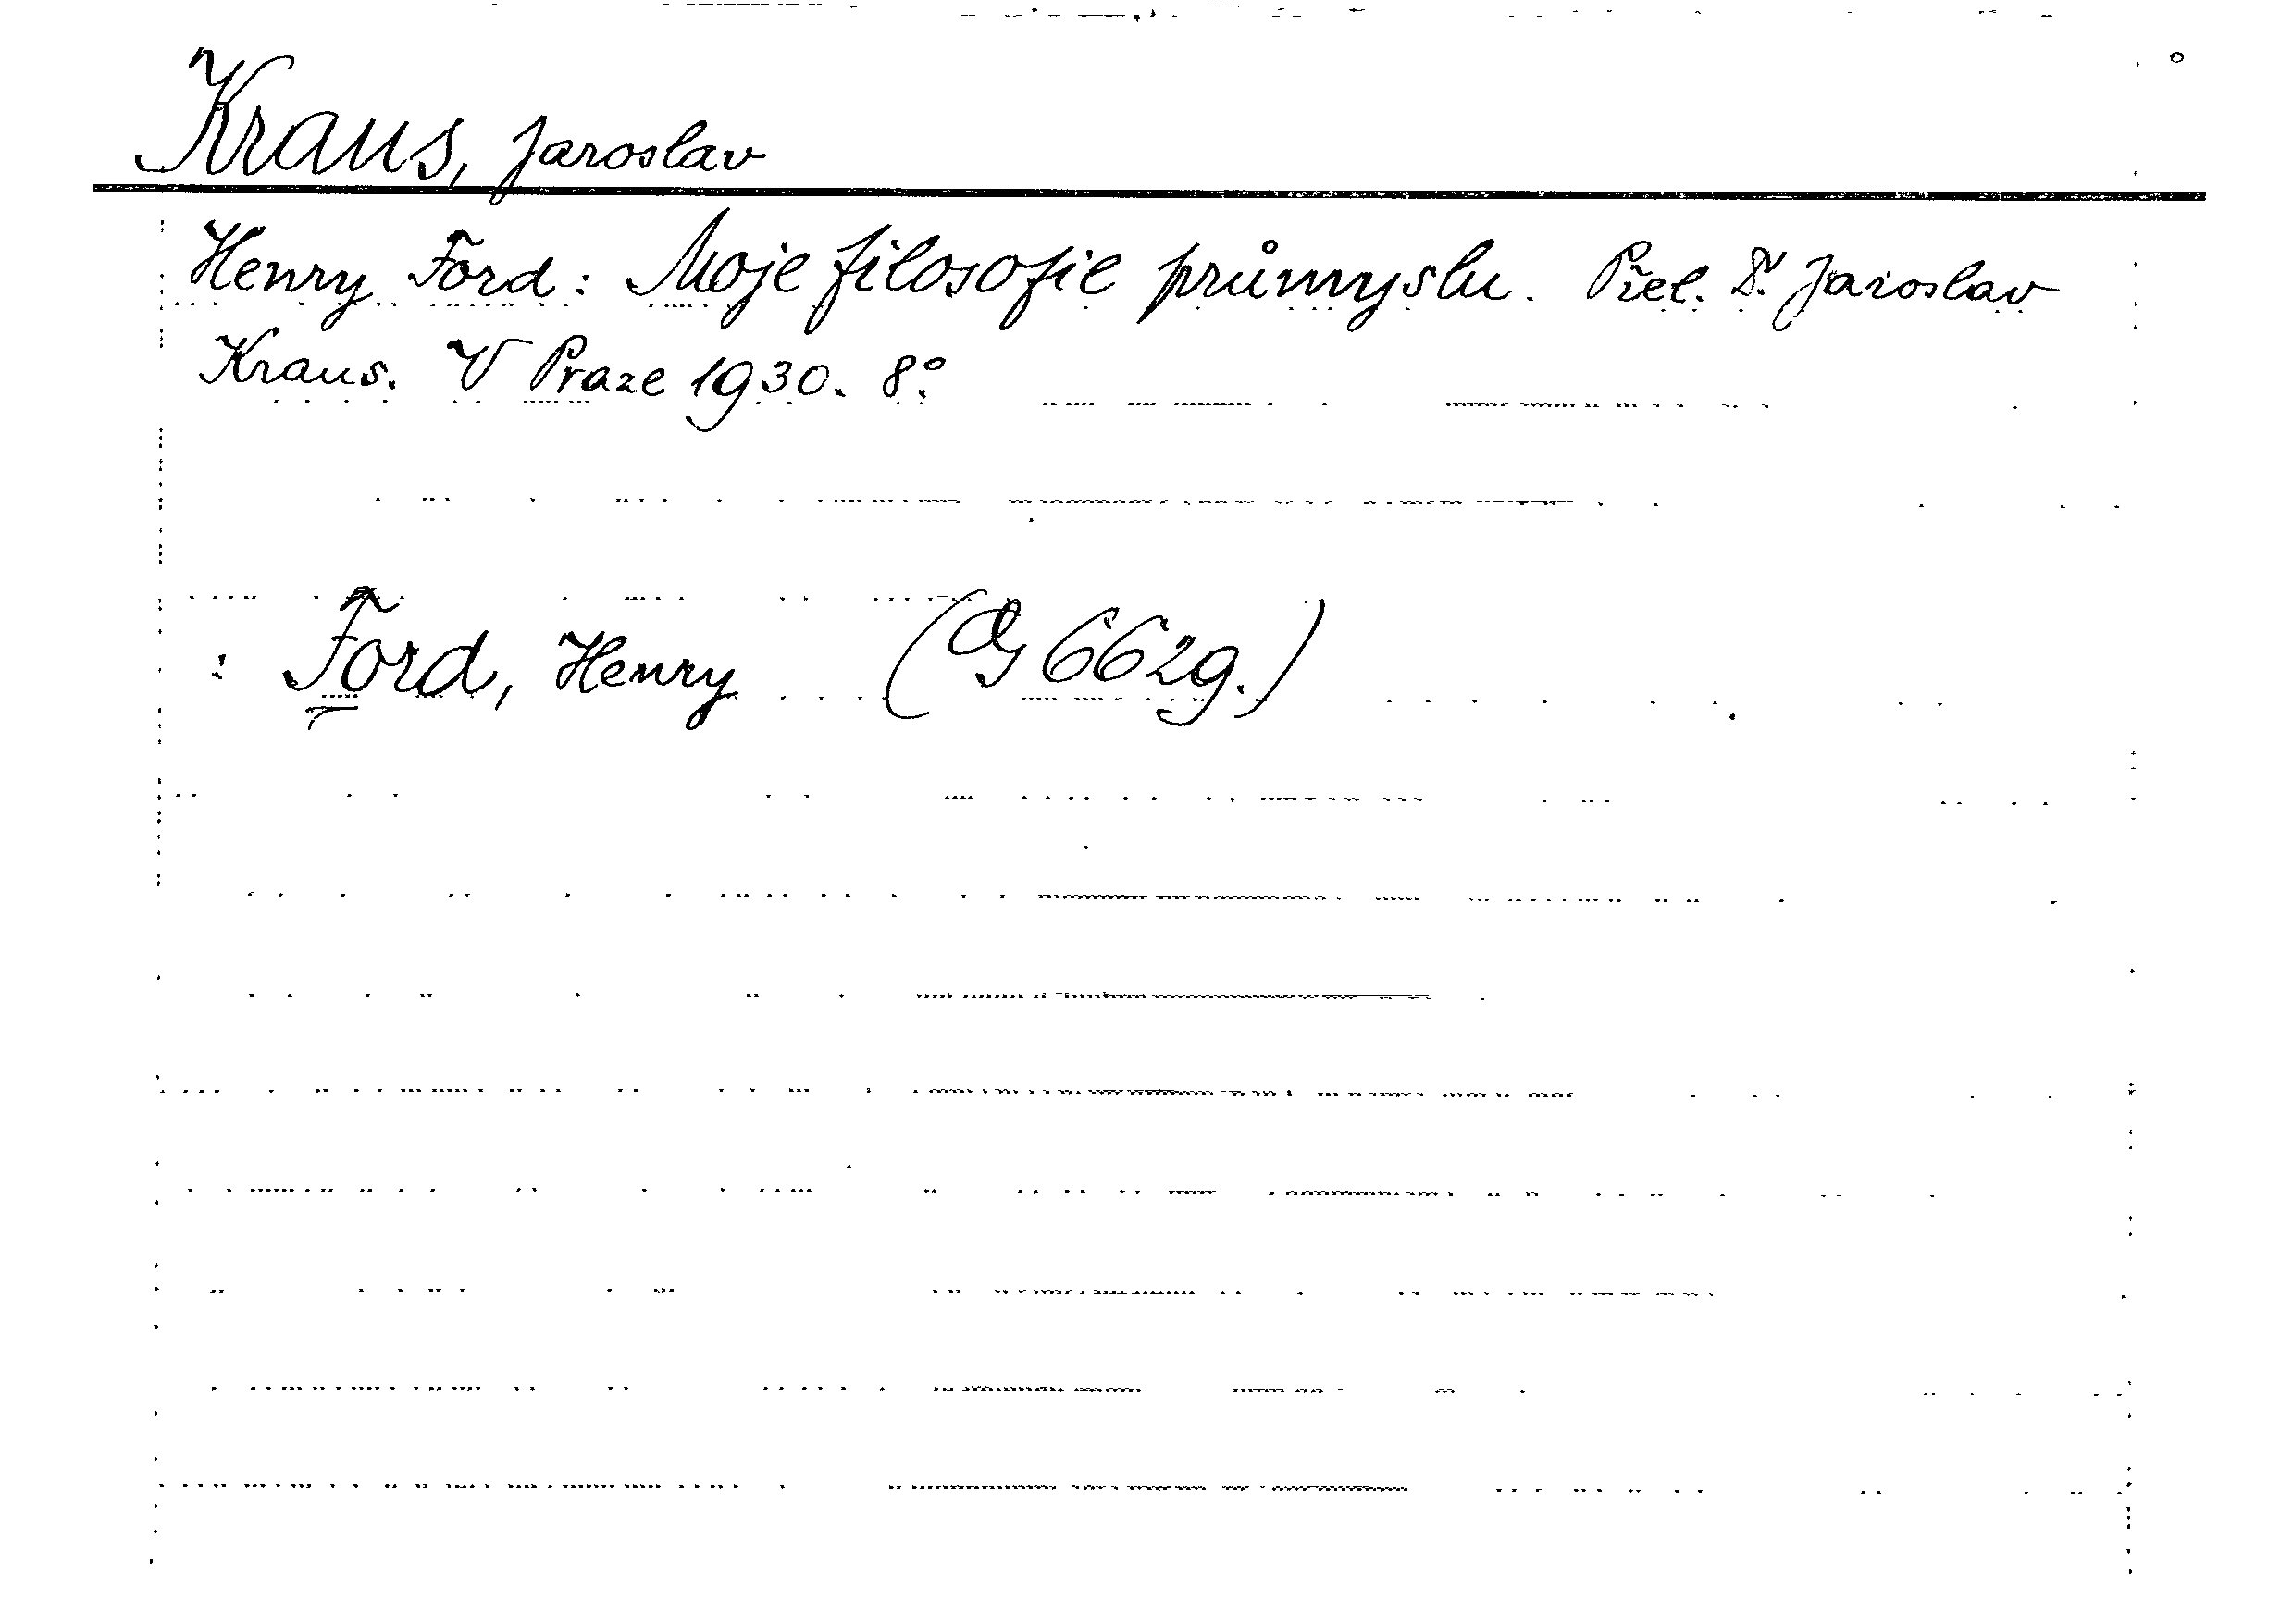 Kraus, Jaroslav
Henry Ford: Moje filosofie průmyslu. Přel. Dr. Jaroslav
Kraus. V Praze 1930. 8°
: Ford, Henry (G 6629.)